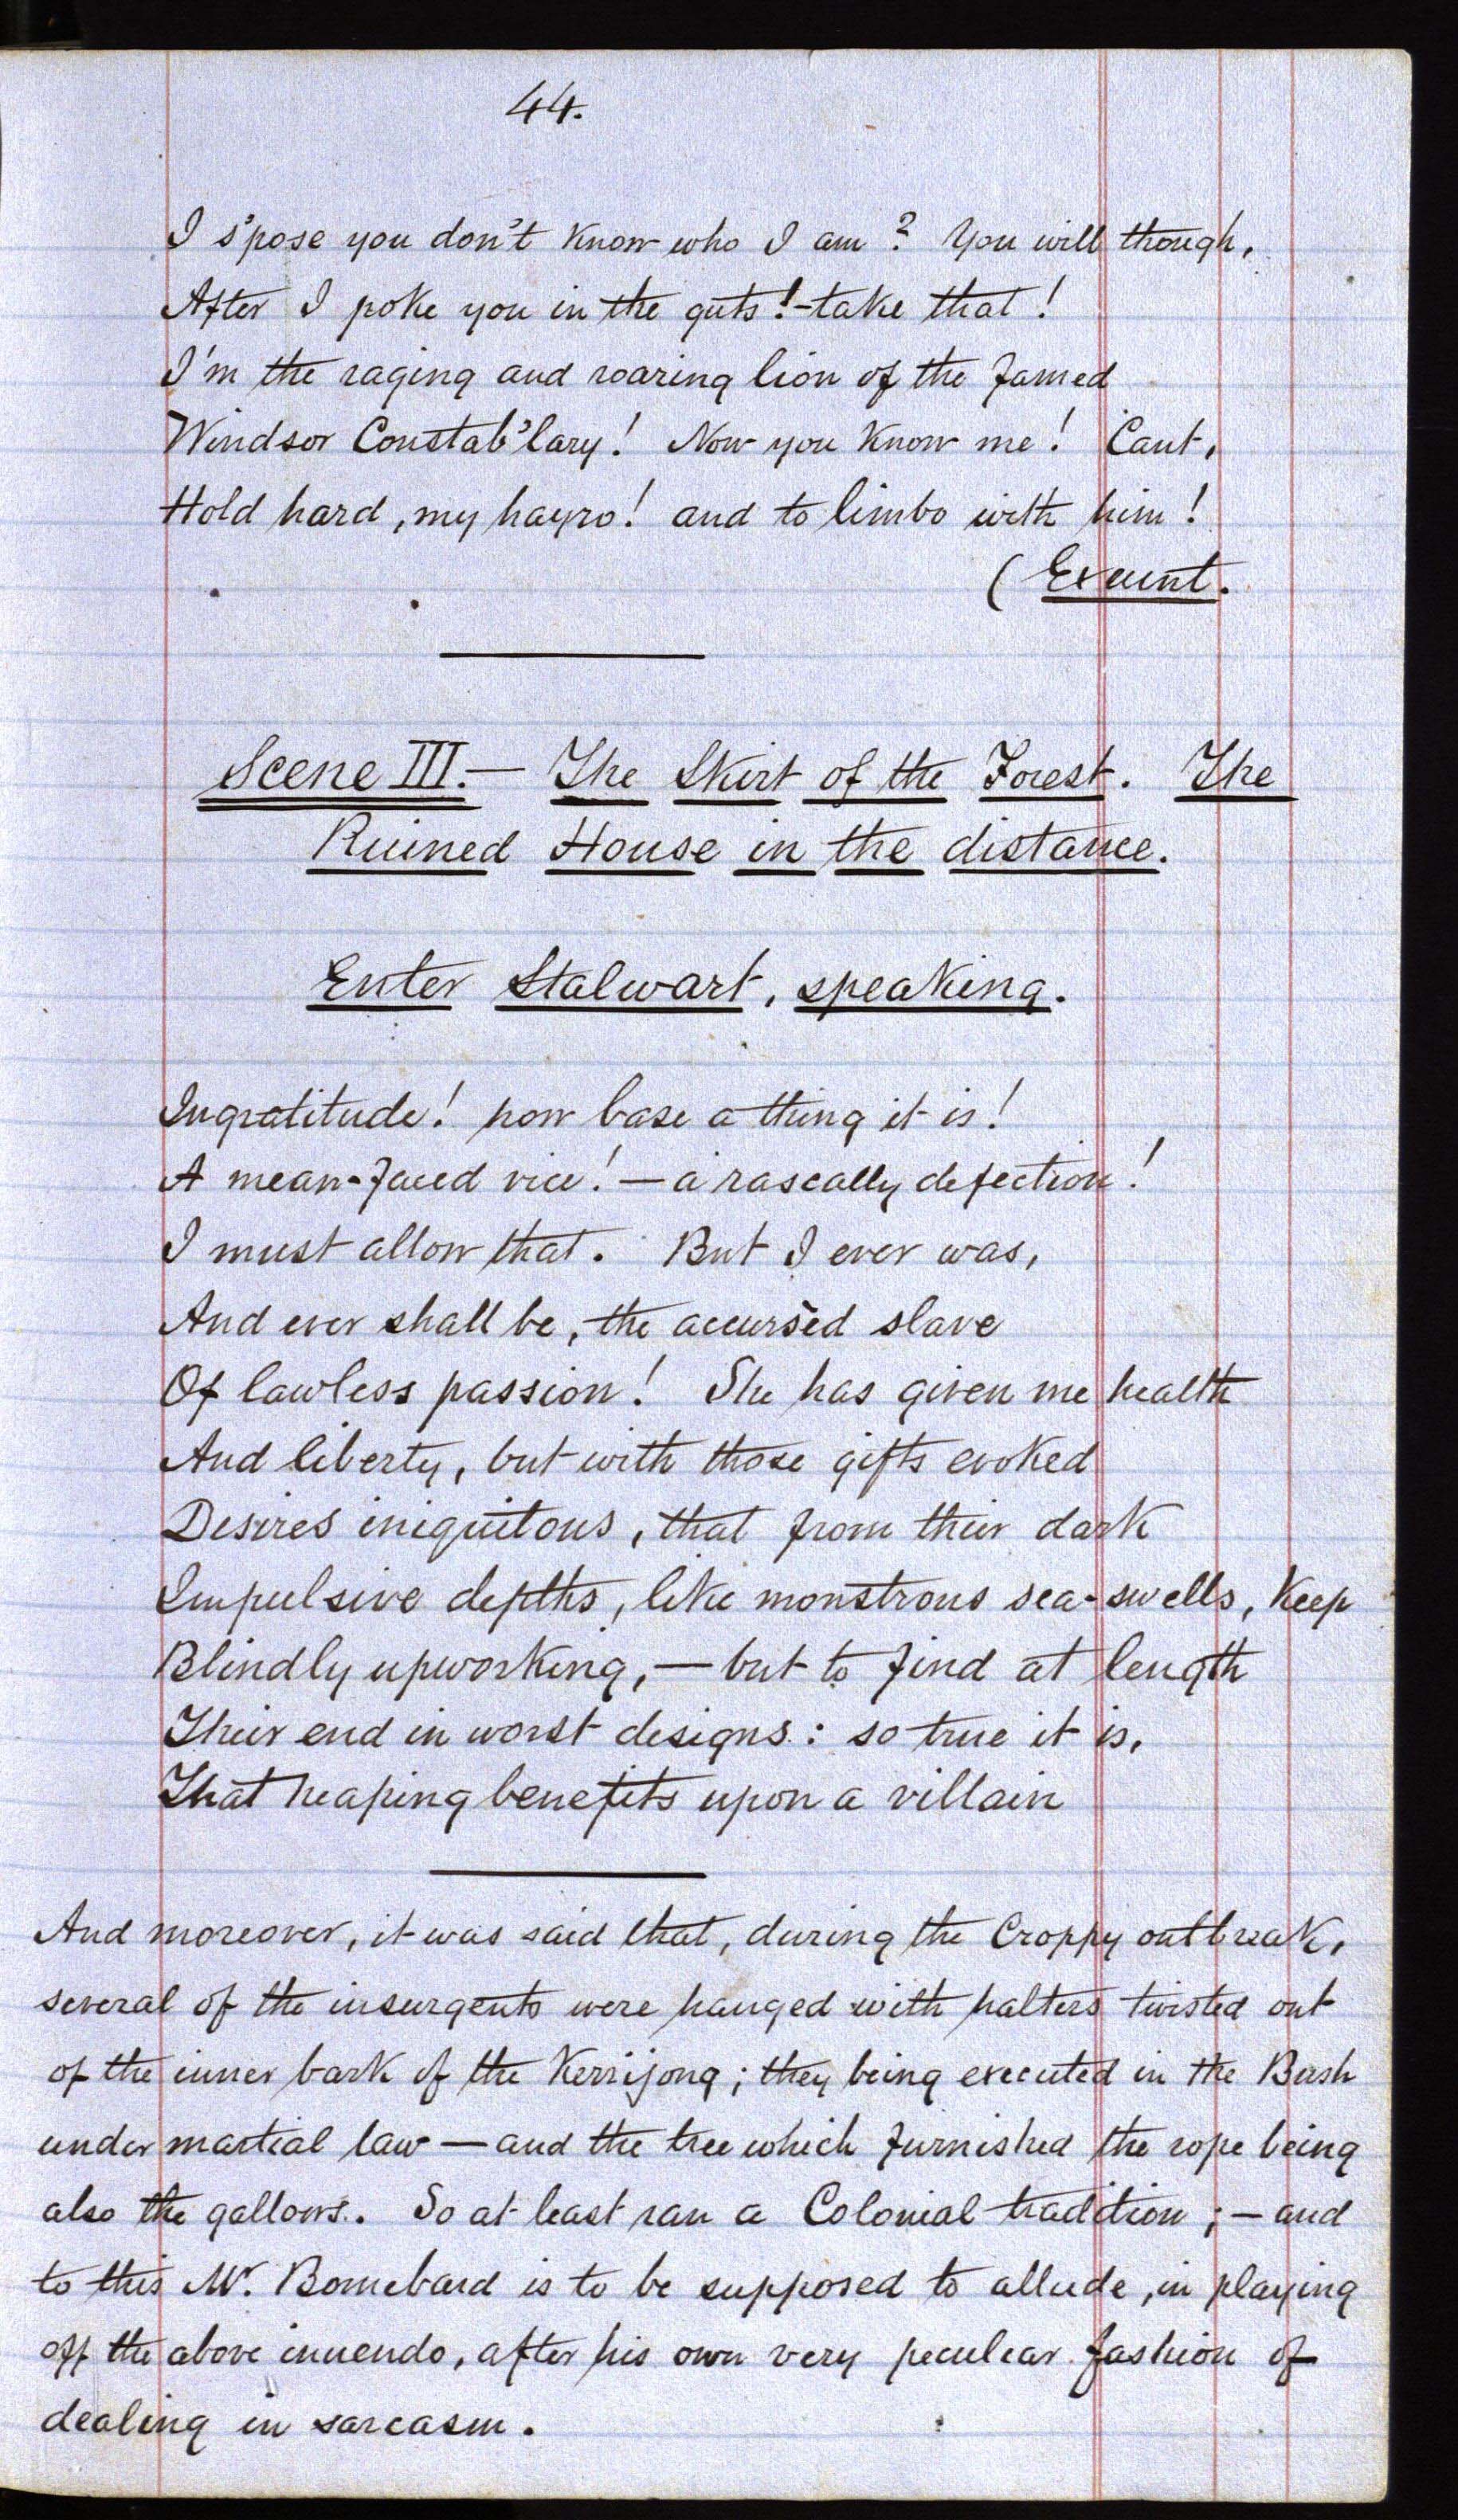 44.
I s'pose you don't know who I am? You will though,
After I poke you in the guts!-take that!
I'm the raging and roaring lion of the famed
Windsor Constab'lary! Now you know me! Cant,
Hold hard, my hayro! and to limbo with him!
(Exeunt.
Scene III.— The Skirt of the Forest. The
Ruined House in the distance.
Enter Stalwart, speaking.
Ingratitude! how base a thing it is!
A mean-faced vice!—a rascally defection!
I must allow that. But I ever was,
And ever shall be, the accursèd slave
Of lawless passion! She has given me health
And liberty, but with those gifts evoked
Desires iniquitous, that from their dark
Impulsive depths, like monstrous sea-swells, keep
Blindly upworking,—but to find at length
Their end in worst designs: so true it is,
That heaping benefits upon a villain
And moreover, it was said that, during the Croppy outbreak,
several of the insurgents were hanged with halters twisted out
of the inner bark of the Kerrijong; they being executed in the Bush
under martial law—and the tree which furnished the rope being
also the gallows. So at least ran a Colonial tradition;—and
to this Mr. Bomebard is to be supposed to allude, in playing
off the above inuendo, after his own very peculear fashion of
dealing in sarcasm.